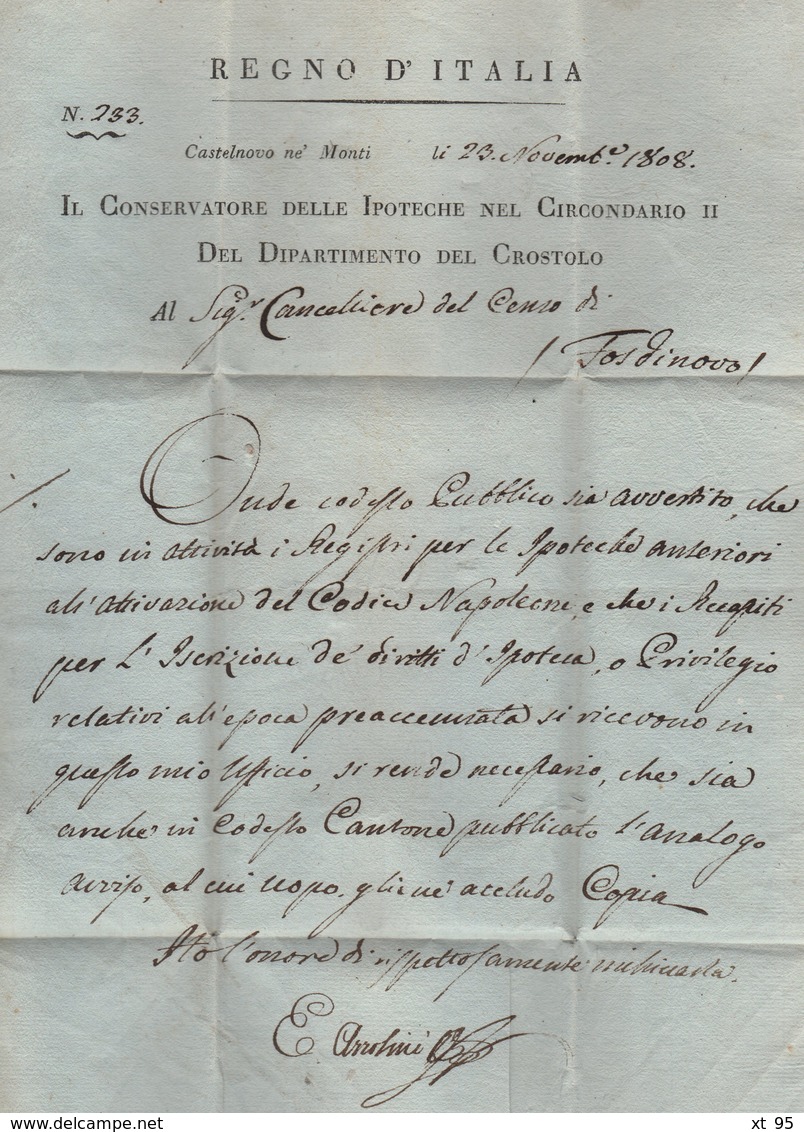 REGNO D' ITALIA
N. 233.
Castelnovo ne' Monti li 23. Novemb.e 1808.
IL CONSERVATORE DELLE IPOTECHE NEL CIRCONDARIO II
DEL DIPARTIMENTO DEL CROSTOLO
Al Sig.r Cancelliere del Censo di
/ Fosdinovo /
Onde codesto Pubblico sia avvertito, che
sono in attività i Registri per le Ipoteche anteriori
all'attivazione del Codice Napoleone, e che i Recapiti
per L' Iscrizione de' diritti d' Ipoteca, o Privilegio
relativi all'epoca preaccennata si ricevono in
questo mio Ufficio, si rende necessario, che sia
anche in Codesto Cantone pubblicato l'analogo
avviso, al cui uopo gliene accludo Copia
Ho l'onore di rispettosamente
E.
www.delcampe.net
xt 95